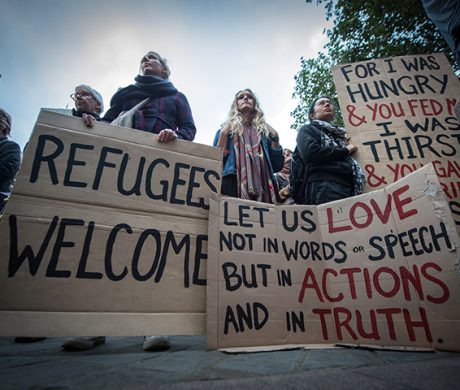 REFUGEES
WELCOME
LET US LOVE
NOT IN WORDS OR SPEECH
BUT IN ACTIONS
AND IN TRUTH.
FOR I WAS
HUNGRY
& YOU FED M
I WAS
THIRS
& YOU GA